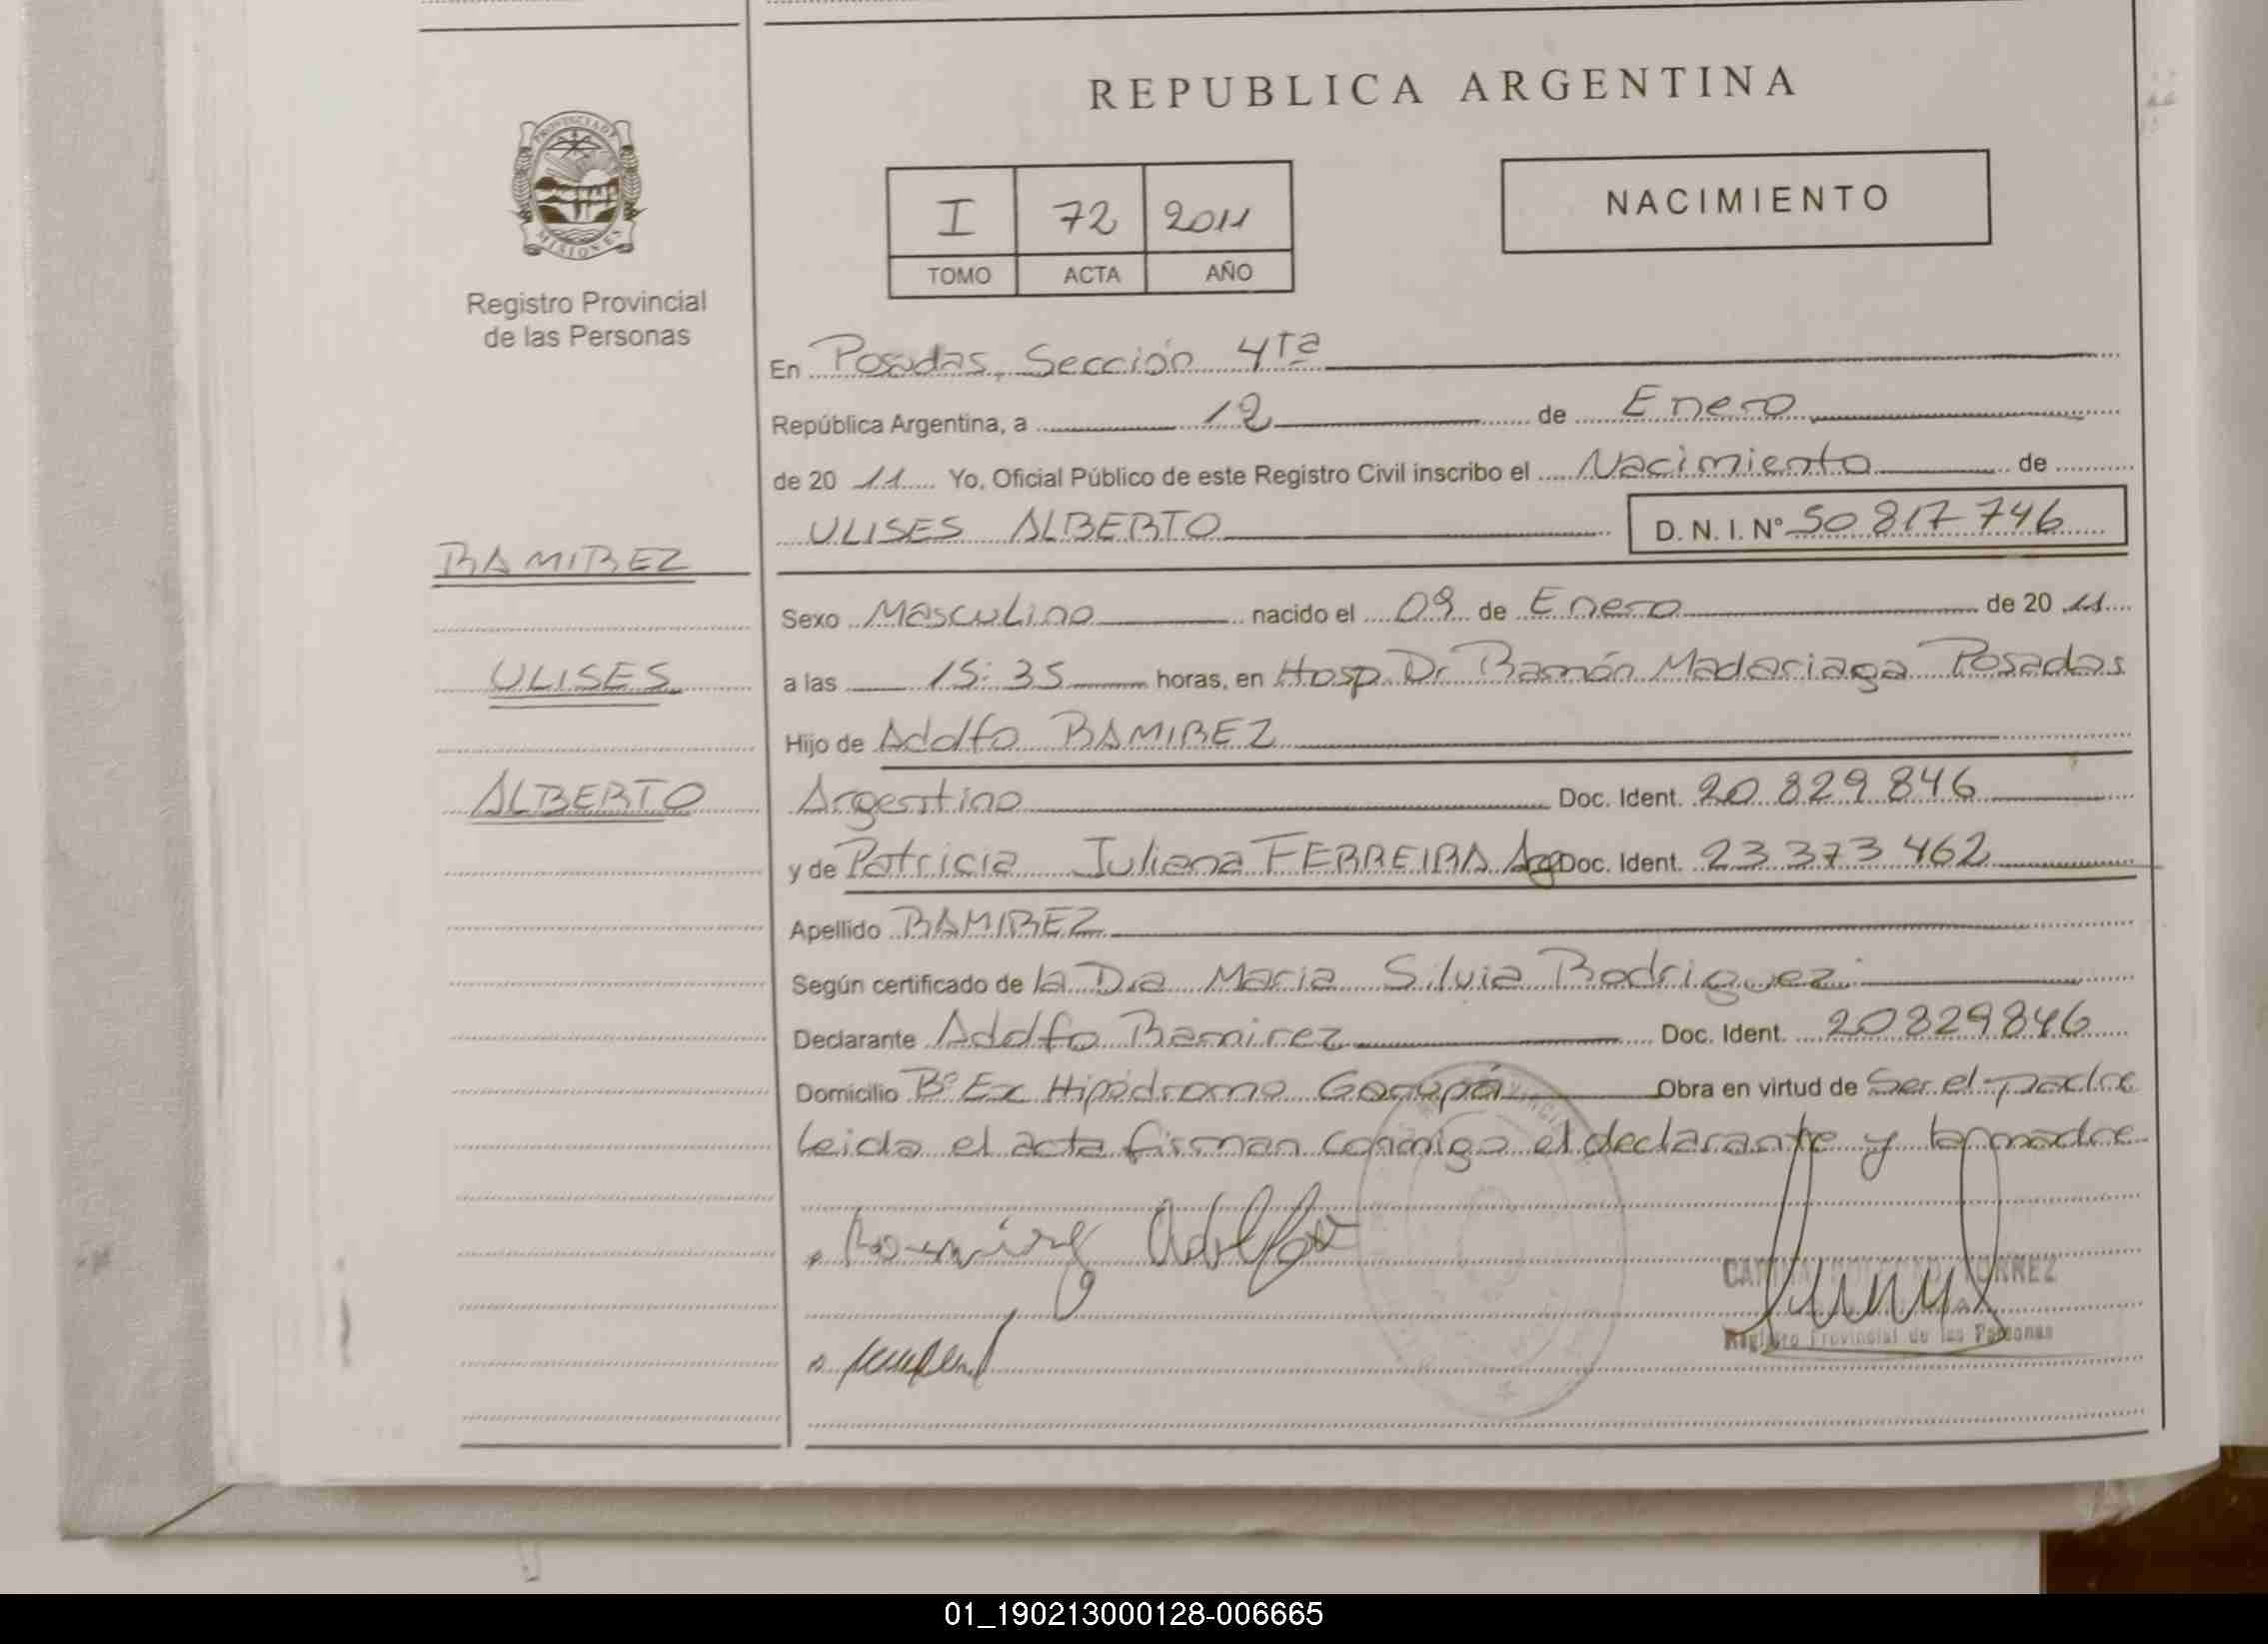 REPUBLICA ARGENTINA
PROVINCIA D
MISIONES
Registro Provincial
de las Personas
I 72 2011
TOMO ACTA AÑO
NACIMIENTO
En Posadas, Sección 4ta
República Argentina, a 12 de Enero
de 20 11 Yo, Oficial Público de este Registro Civil inscribo el Nacimiento de
ULISES ALBERTO D. N. I. Nº 50 817 746
RAMIREZ
Sexo Masculino nacido el 09 de Enero de 20 11
ULISES
a las 15:35 horas, en Hosp. Dr Ramón Madariaga Posadas
Hijo de Adolfo RAMIREZ
ALBERTO
Argentino Doc. Ident. 20 829 846
y de Patricia Juliana FERREIRA Arg Doc. Ident. 23 373 462
Apellido RAMIREZ
Según certificado de la Dra Maria Silvia Rodriguez
Declarante Adolfo Ramirez Doc. Ident. 20829846
Domicilio Bº Ex Hipódromo Garupá Obra en virtud de Ser el padre
leida el acta firman conmigo el declarante y la madre
Ramirez Adolfo
Registro Provincial de las Personas
01_190213000128-006665